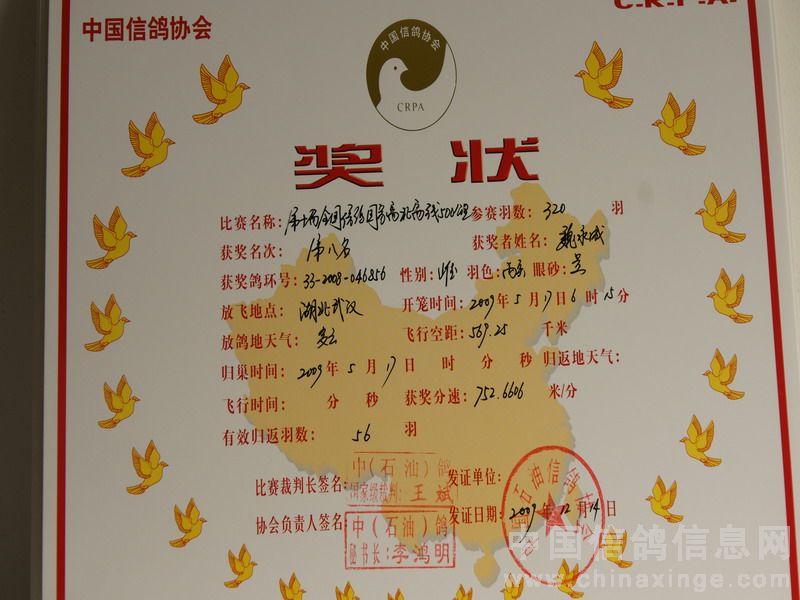 中国信鸽协会
C.R.P.A.
中国信鸽协会
CRPA
奖 状
比赛名称: 500公里 参赛羽数: 320 羽
获奖名次: 第八名 获奖者姓名: 魏永成
获奖鸽环号: 33-2008-046856 性别: 雄 羽色: 雨点 眼砂: 黄
放飞地点: 湖北武汉 开笼时间: 2009 年 5 月 17 日 6 时 15 分
放鸽地天气: 多云 飞行空距: 569.25 千米
归巢时间: 2009 年 5 月 17 日 时 分 秒 归返地天气:
飞行时间: 分 秒 获奖分速: 752.6606 米/分
有效归返羽数: 56 羽
比赛裁判长签名: 中(石油)鸽 国家级裁判: 王斌 发证单位:
协会负责人签名: 中(石油)鸽 秘书长: 李鸿明 发证日期: 2009 年 12 月 14 日
中国信鸽信息网
www.chinaxinge.com